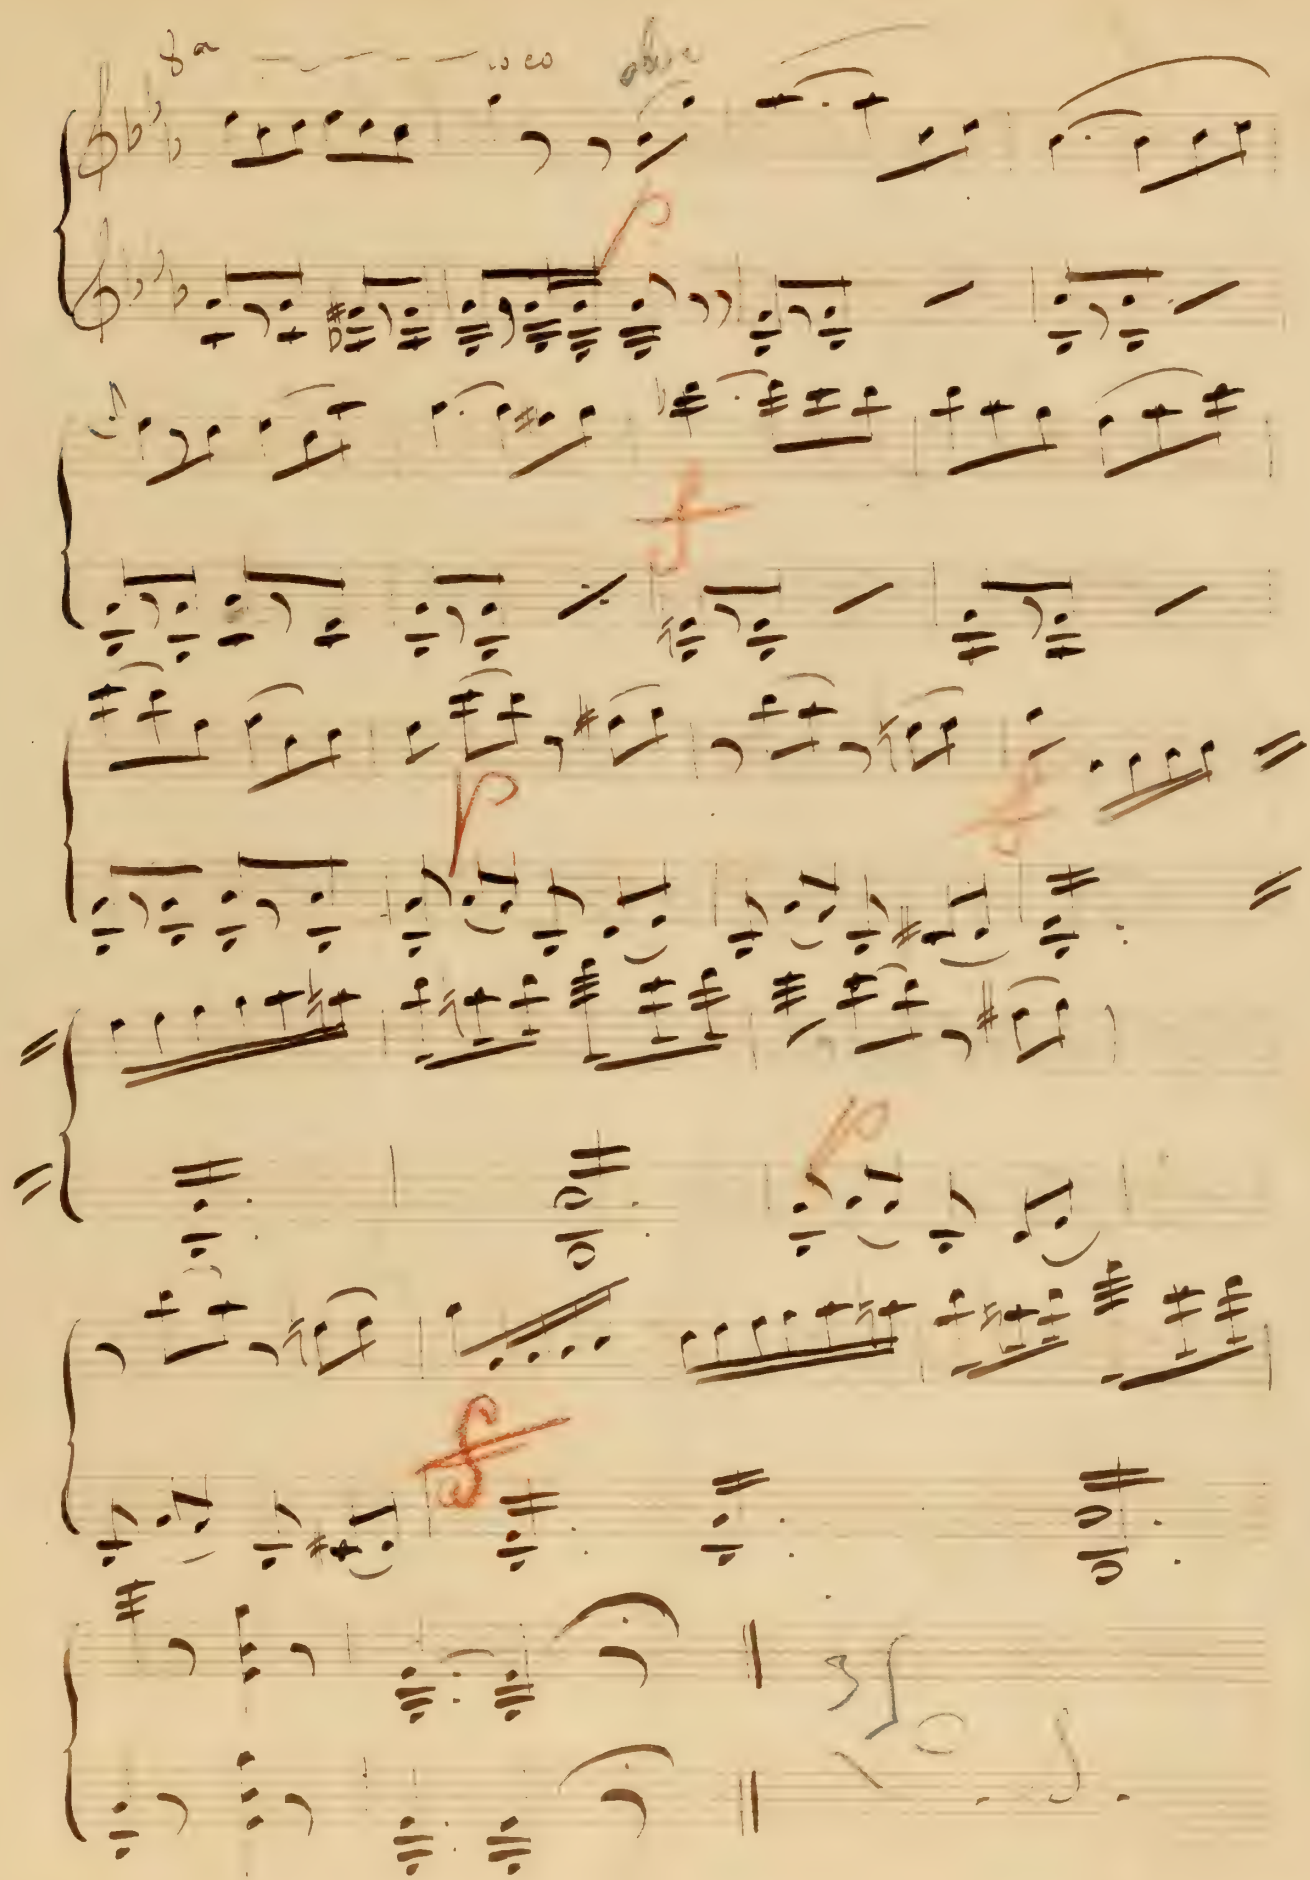 8a loco oboe
p
f
p
f
p
f